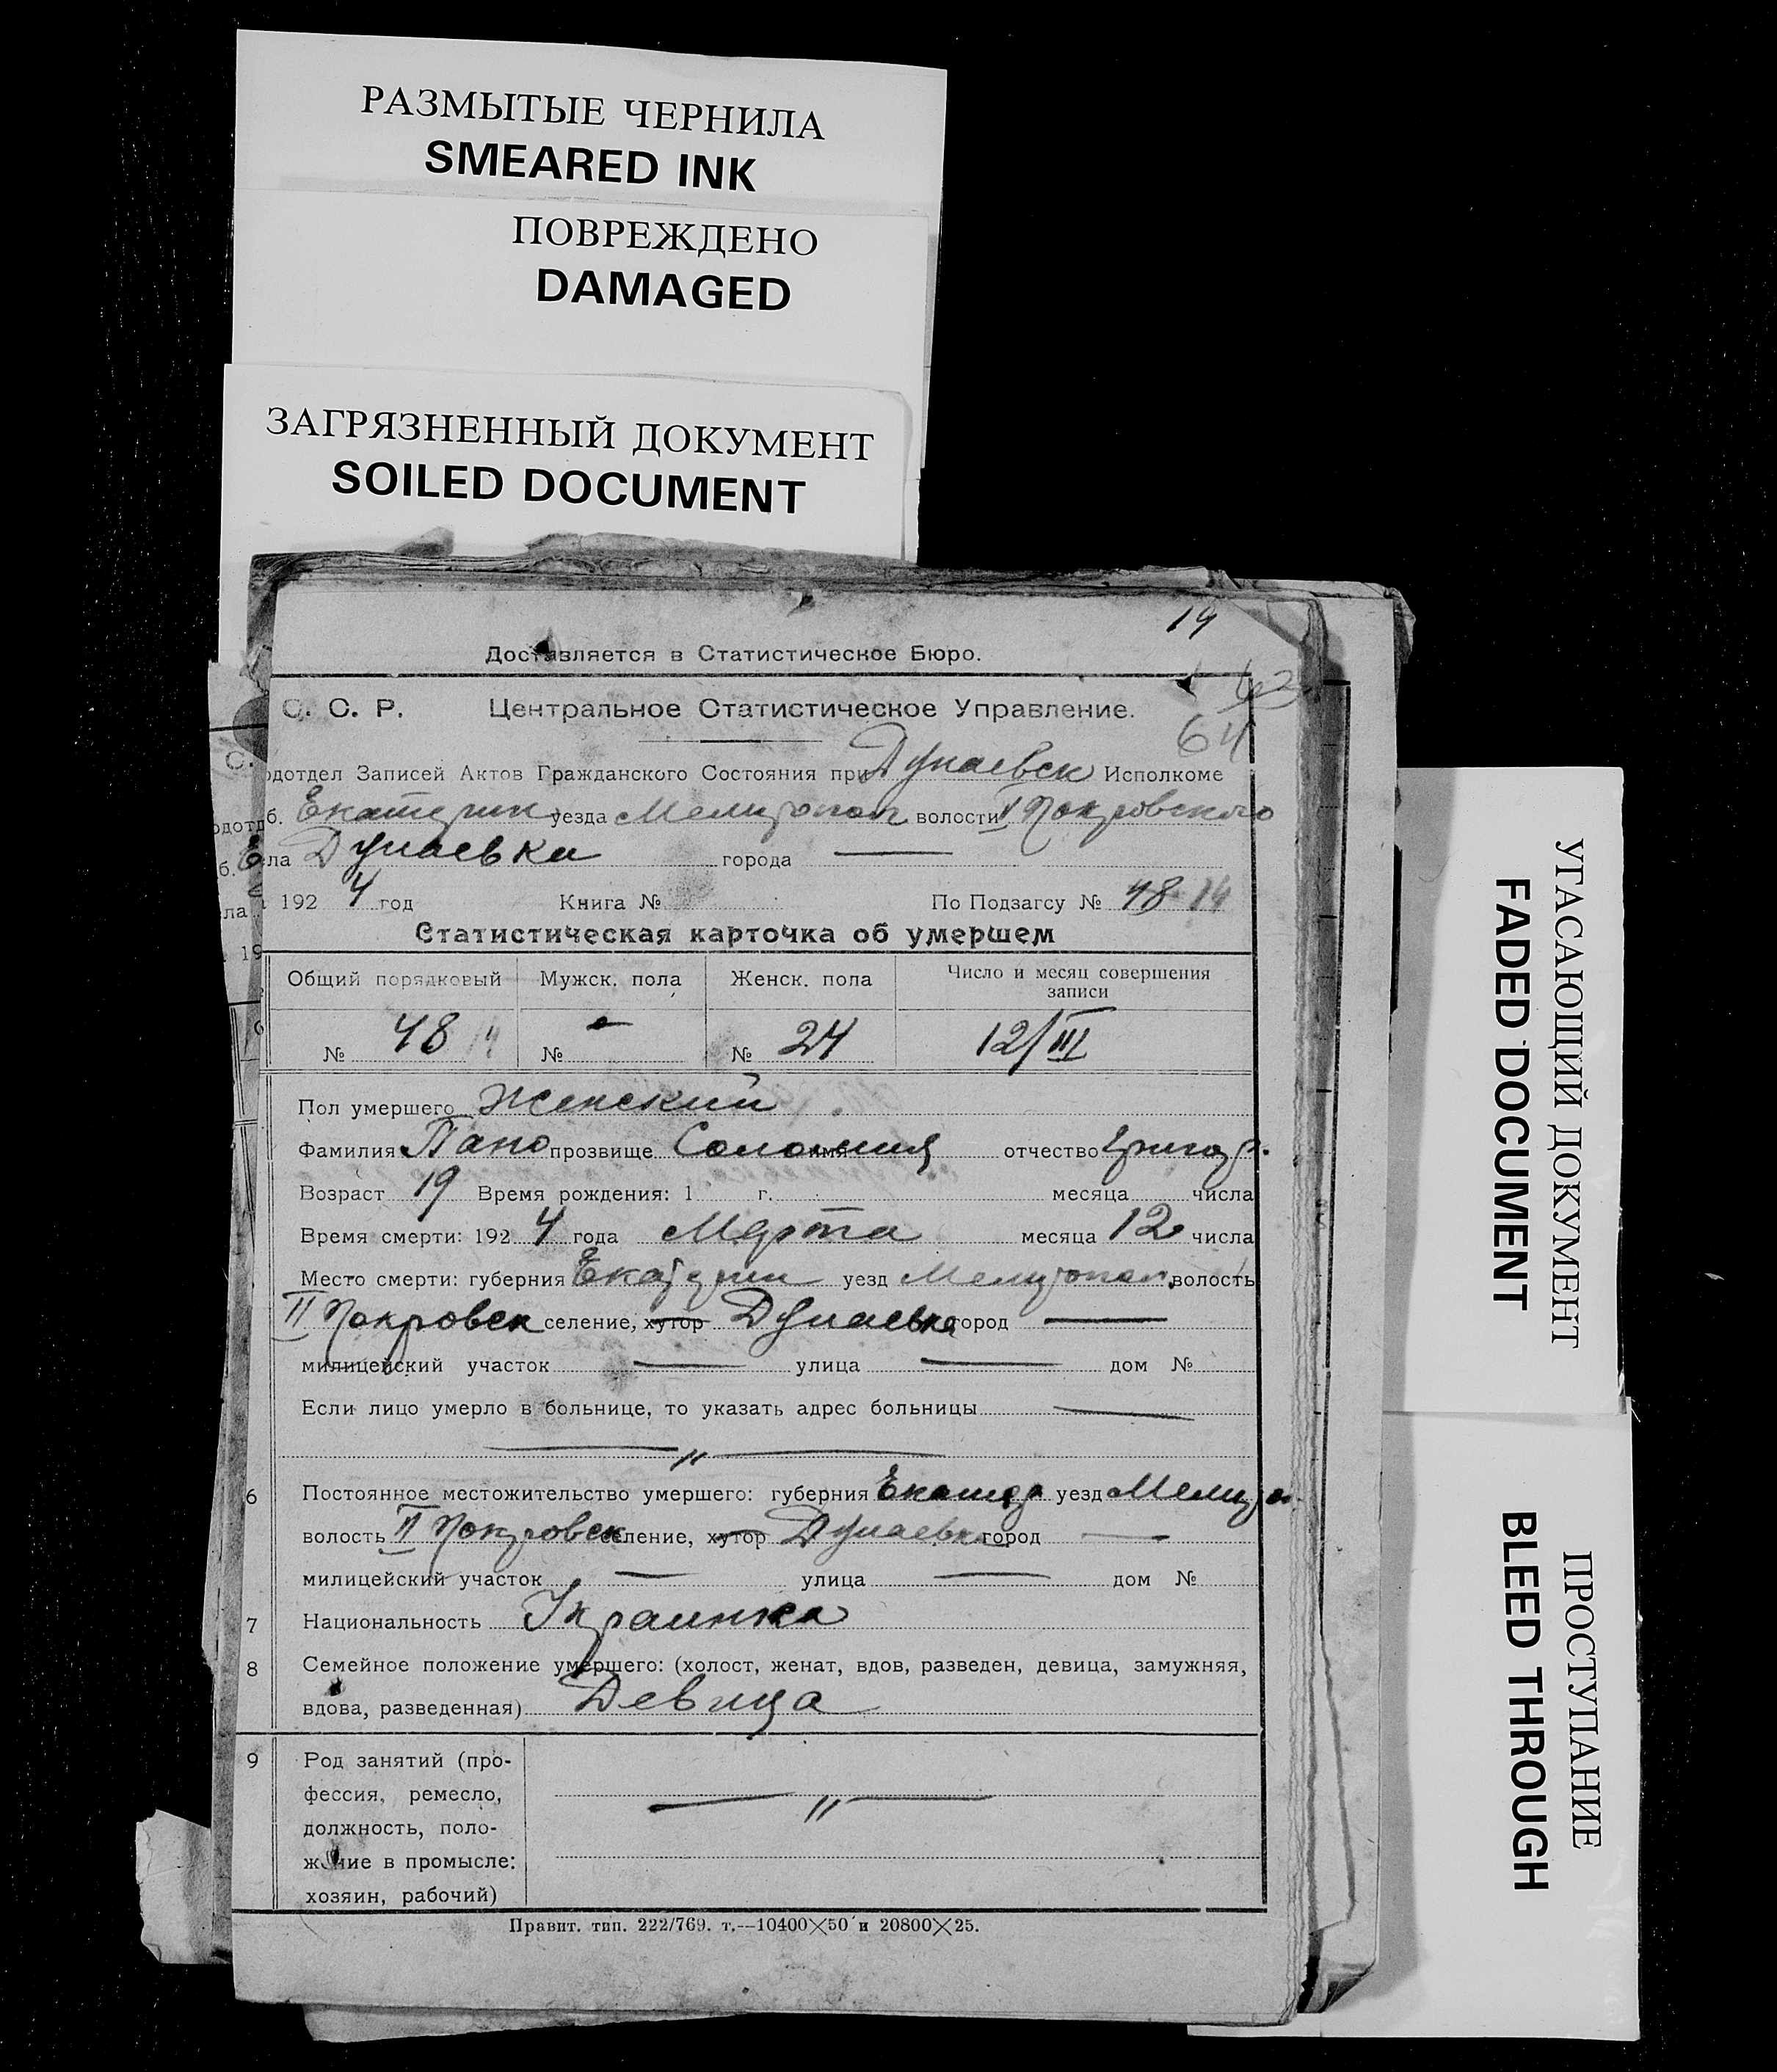 РАЗМЫТЫЕ ЧЕРНИЛА
SMEARED INK
ПОВРЕЖДЕНО
DAMAGED
ЗАГРЯЗНЕННЫЙ ДОКУМЕНТ
SOILED DOCUMENT
19
Доставляется в Статистическое Бюро.
63
С. С. Р. Центральное Статистическое Управление.
64
одотдел Записей Актов Гражданского Состояния при Дунаевск Исполкоме
б. Екатерин уезда Мелитопол волости II Покровского
ла Дунаевки города —
192 4 год Книга № По Подзагсу № 48 14
Статистическая карточка об умершем
Общий порядковый Мужск. пола Женск. пола Число и месяц совершения записи
№ 48 14 № — № 24 12/III
Пол умершего Женский
Фамилия Пано прозвище Соломия отчество Григор.
Возраст 19 Время рождения: 1 г. месяца числа
Время смерти: 192 4 года Марта месяца 12 числа
Место смерти: губерния Екатерин уезд Мелитопол. волость
II Покровск селение, хутор Дунаевка город —
милицейский участок — улица — дом №
Если лицо умерло в больнице, то указать адрес больницы —
— „ —
6 Постоянное местожительство умершего: губерния Екатер уезд Мелитоп.
волость II Покровск селение, хутор Дунаевка город —
милицейский участок — улица — дом №
7 Национальность Украинка
8 Семейное положение умершего: (холост, женат, вдов, разведен, девица, замужняя,
вдова, разведенная) Девица
9 Род занятий (про-
фессия, ремесло,
должность, поло-
жение в промысле:
хозяин, рабочий)
— „ —
Правит. тип. 222/769. т.—10400×50 и 20800×25.
УГАСАЮЩИЙ ДОКУМЕНТ
FADED DOCUMENT
ПРОСТУПАНИЕ
BLEED THROUGH